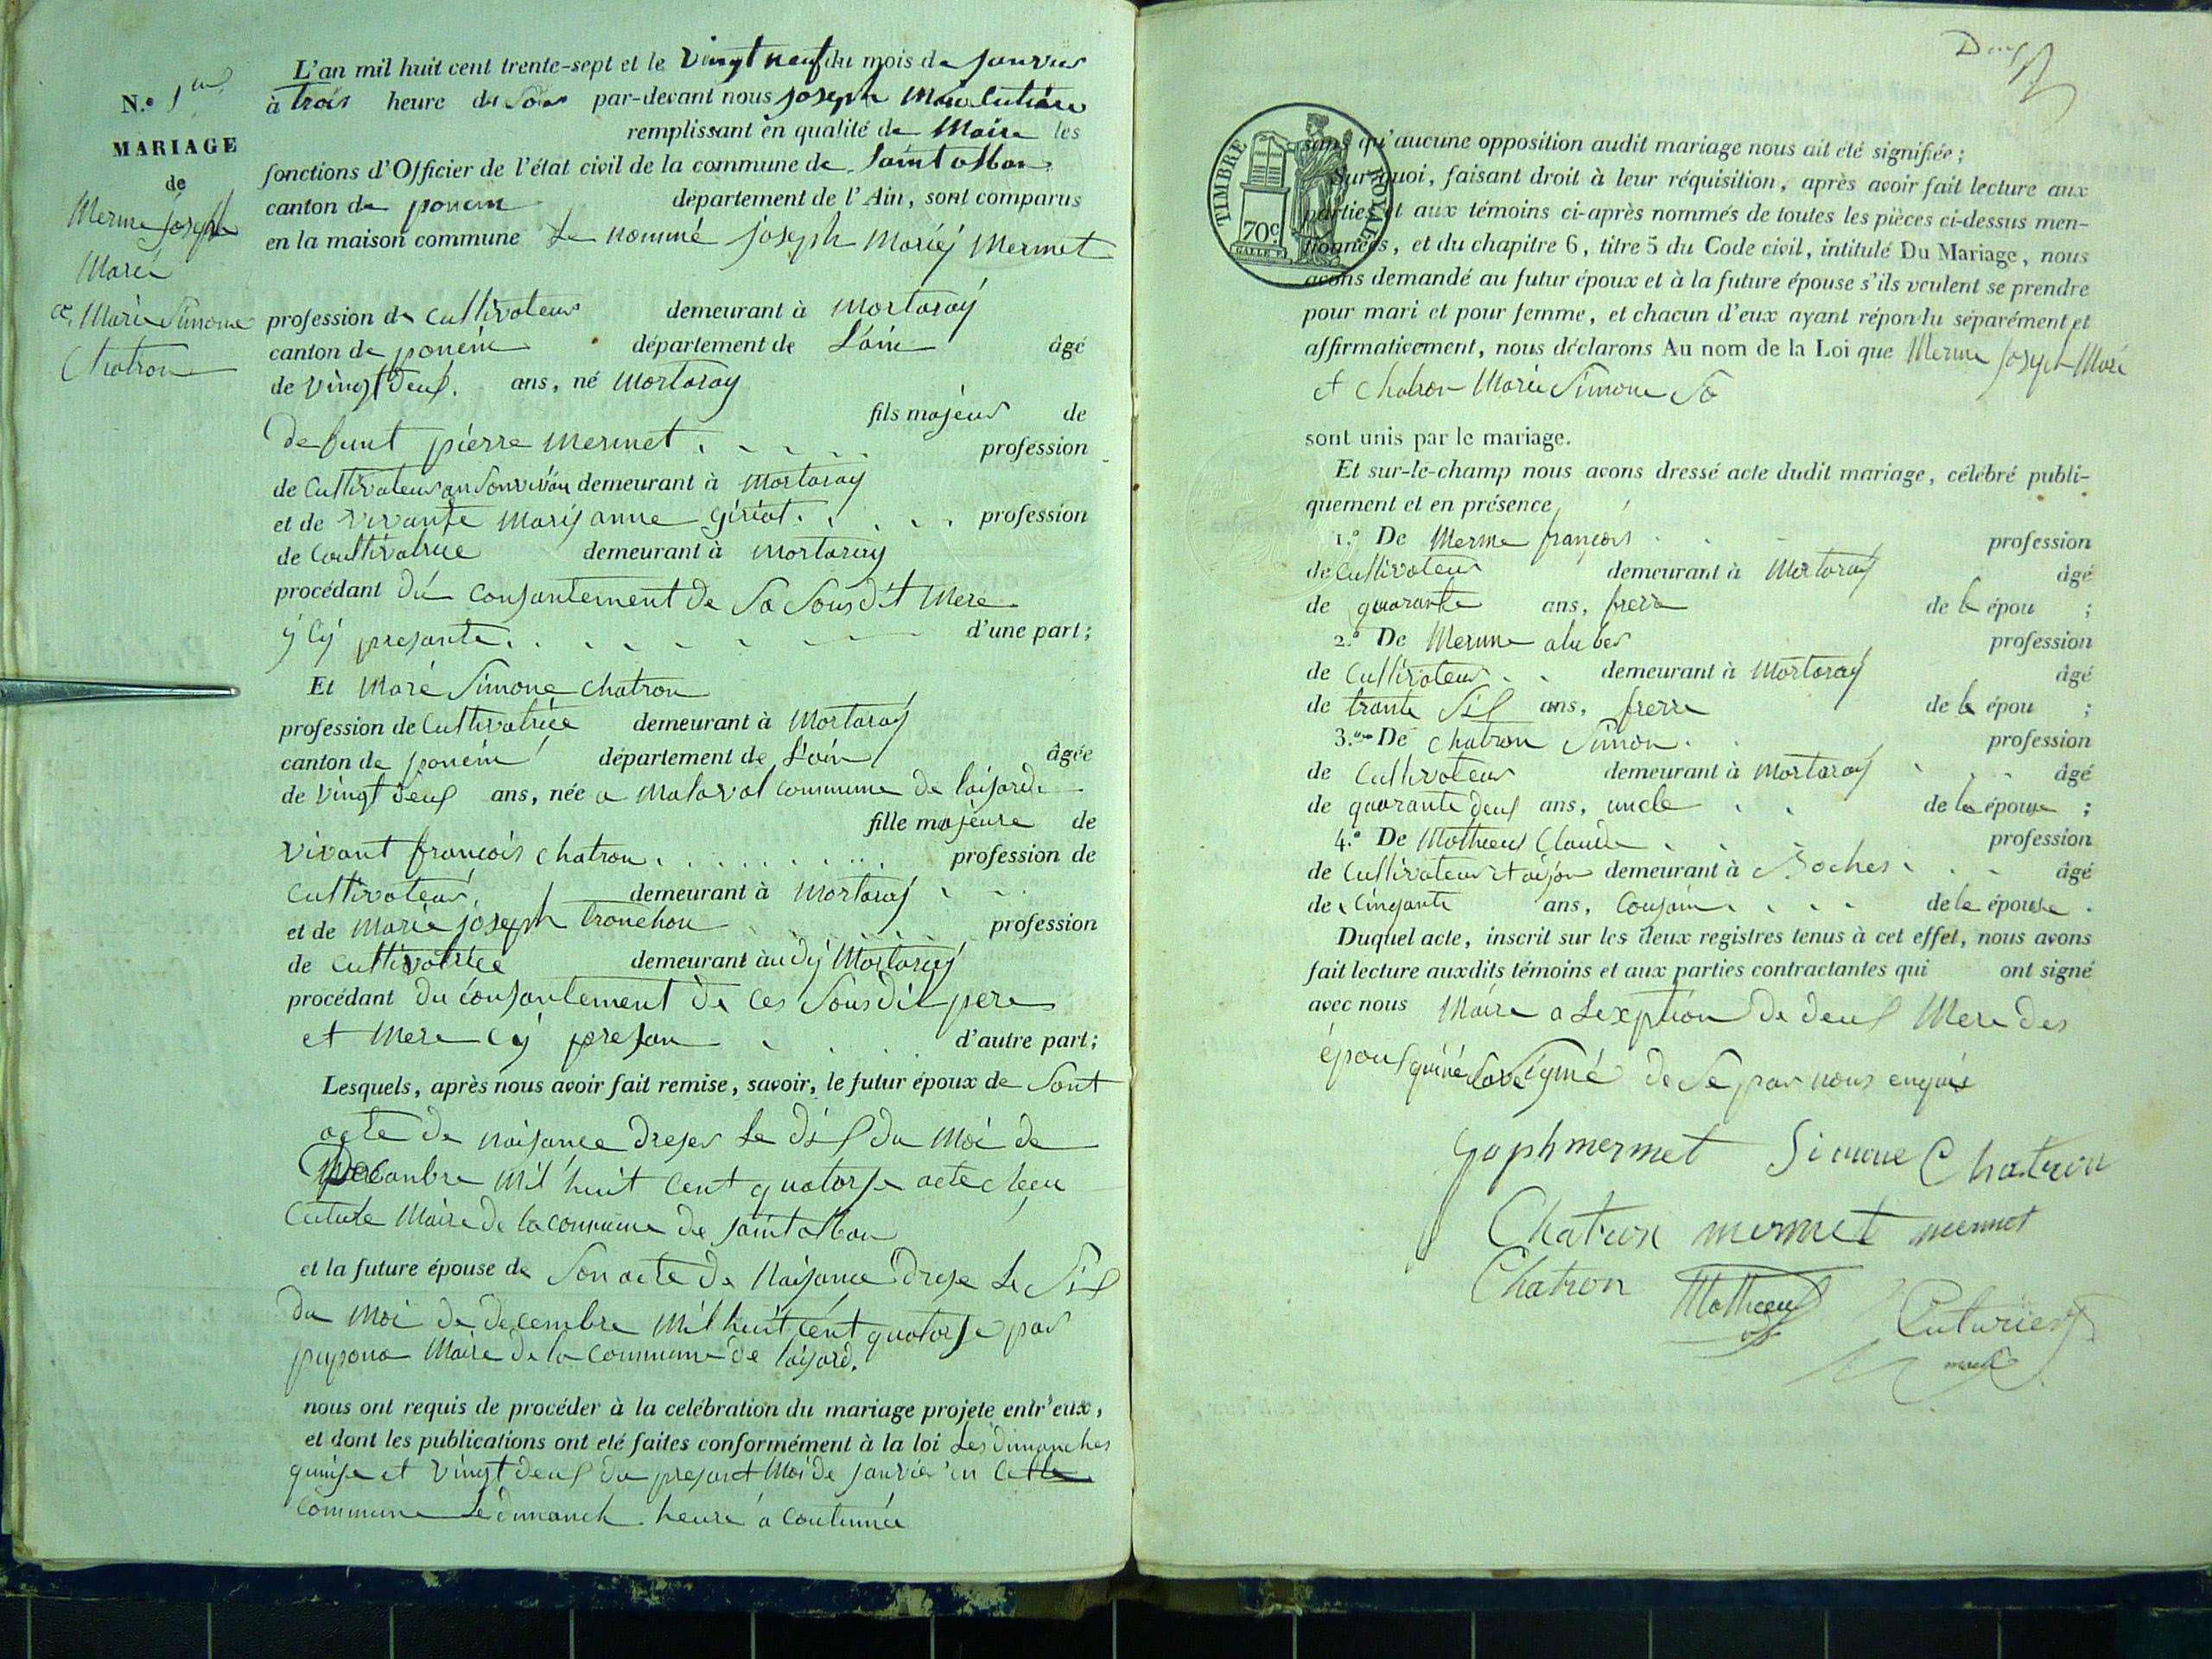 N.o 1er
MARIAGE
de
Merme joseph
Marié
et Marie Simone
Chatron
L'an mil huit cent trente-sept et le vingt neuf du mois de janvier
à trois heure du Soir par-devant nous joseph Marie Cuturier
remplissant en qualité de Maire les
fonctions d'Officier de l'état civil de la commune de Saint alban
canton de poncin département de l'Ain, sont comparus
en la maison commune Le nommé joseph Mariéj Mermet
profession de Cultivateur demeurant à Mortaraÿ
canton de poncin département de L'ain âgé
de vingt deux. ans, né Mortaray
fils majeur de
defunt pierre Mermet . profession
de Cultivateur an Sonvivan demeurant à Mortaray
et de vivante Marijanne Giriat . profession
de Coultivatrice demeurant à Mortaray
procédant du Consantement de Sa Sousdit Mere
ÿ Cÿ presante . d'une part;
Et Marié Simone Chatron
profession de Cultivatrice demeurant à Mortaraÿ
canton de poncin département de L'ain âgée
de vingt deux ans, née a Malaval Commune de laisard.
fille majeure de
vivant françois Chatron . profession de
Cultivateur, demeurant à Mortaray
et de Marie joseph tronchon profession
de Cultivatrice demeurant à udÿ Mortaray
procédant du consantement de Ces Sousdit pere
et Mere Cÿ presan d'autre part;
Lesquels, après nous avoir fait remise, savoir, le futur époux de Sont
acte de naisance dreser Le dix du Moi de
Decanbre Mil huit Cent quatorse acte
Maire de la commune de Saint alban
et la future épouse de Son acte de Naisance drese Le Six
du Moi de decembre Mil huit cent quatorse par
Maire de la Commune de laisard.
nous ont requis de procéder à la celébration du mariage projeté entr'eux,
et dont les publications ont eté faites conformément à la loi Les dimanches
quinse et vingt deux du presant Moi de janvier en Cette
Commune Le dimanch heure a Coutumée
sans qu'aucune opposition audit mariage nous ait été signifiée;
Sur quoi, faisant droit à leur réquisition, après avoir fait lecture aux
parties et aux témoins ci-après nommés de toutes les pièces ci-dessus men-
tionnées, et du chapitre 6, titre 5 du Code civil, intitulé Du Mariage, nous
avons demandé au futur époux et à la future épouse s'ils veulent se prendre
pour mari et pour femme, et chacun d'eux ayant répondu séparément et
affirmativement, nous déclarons Au nom de la Loi que Merme joseph Marie
et Chatron Marie Simone Sa
sont unis par le mariage.
Et sur-le-champ nous avons dressé acte dudit mariage, célébré publi-
quement et en présence
1.o De Merme françois . profession
de Cultivateur demeurant à Mortaraÿ âgé
de quarante ans, frere de l épou ;
2.o De Merme profession
de Cultivateur . demeurant à Mortaraÿ âgé
de trante Six ans, frerre de l épou ;
3.o De Chatron Simon . profession
de Cultivateur demeurant à Mortaraÿ âgé
de quarante deux ans, uncle de la épouse ;
4.o De Mathieux Claude profession
de Cultivateur demeurant à Roches âgé
de Cinqante ans, Cousain de la épouse .
Duquel acte, inscrit sur les deux registres tenus à cet effet, nous avons
fait lecture auxdits témoins et aux parties contractantes qui ont signé
avec nous Maire a Lexption de deux Mere des
époux de Se par nous enquis
TIMBRE ROYAL
70c
joph mermet Simone Chatron
Chatron mermet mermet
Chatron Mathieux Cuturier
maire